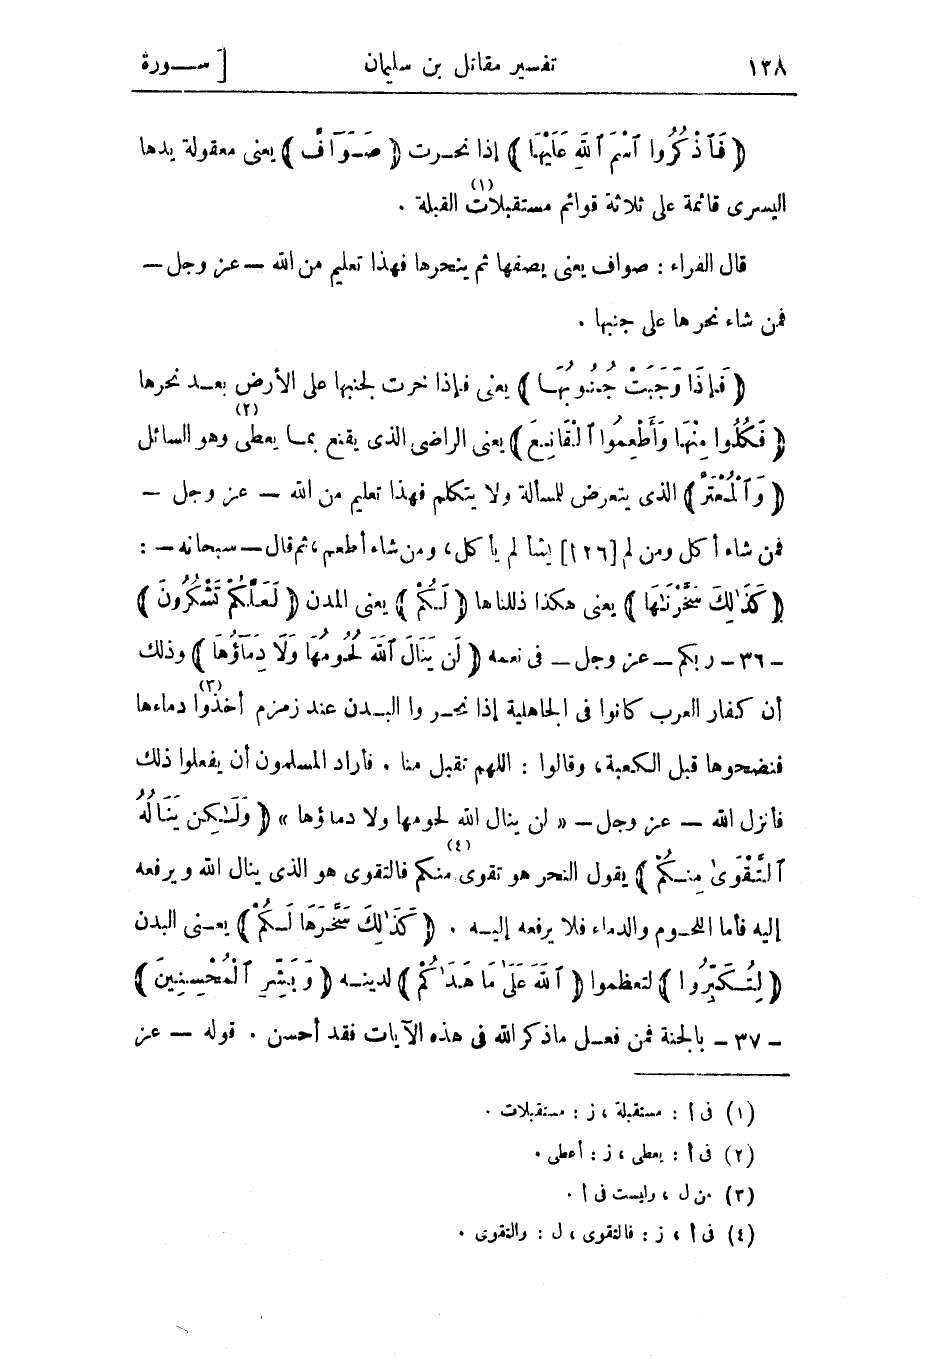 ١٢٨ تفسير مقاتل بن سليمان [ ســورة
﴿ فَٱذْكُرُوا ٱسْمَ ٱللَّهِ عَلَيْهَا ﴾ إذا نحـرت ﴿ صَـوَآفَّ ﴾ يعنى معقولة يدها
اليسرى قائمة على ثلاثة قوائم مستقبلات (١) القبلة .
قال الفراء : صواف يعنى يصفها ثم ينحرها فهذا تعليم من الله — عز وجل —
فمن شاء نحرها على جنبها .
﴿ فَإِذَا وَجَبَتْ جُنُوبُهَـا ﴾ يعنى فإذا خرت لجنبها على الأرض بعـد نحرها
﴿ فَكُلُوا مِنْهَا وَأَطْعِمُوا ٱلْقَانِـعَ ﴾ يعنى الراضى الذى يقنع بمـا يعطى (٢) وهو السائل
﴿ وَٱلْمُعْتَرَّ ﴾ الذى يتعرض للمسألة ولا يتكلم فهذا تعليم من الله — عز وجل —
فمن شاء أكل ومن لم [١٢٦] يشأ لم يأكل، ومن شاء أطعم، ثم قال — سبحانه — :
﴿ كَذَٰلِكَ سَخَّرْنَٰهَا ﴾ يعنى هكذا ذللناها ﴿ لَـكُمْ ﴾ يعنى المدن ﴿ لَعَلَّكُمْ تَشْكُرُونَ ﴾
— ٣٦ — ربكم — عز وجل — فى نعمه ﴿ لَن يَنَالَ ٱللَّهَ لُحُومُهَا وَلَا دِمَآؤُهَا ﴾ وذلك
أن كفار العرب كانوا فى الجاهلية إذا نحـروا البـدن عند زمزم أخذوا (٣) دماءها
فنضحوها قبل الكعبة، وقالوا : اللهم تقبل منا . فأراد المسلمون أن يفعلوا ذلك
فأنزل الله — عز وجل — « لن ينال الله لحومها ولا دماؤها » ﴿ وَلَـٰكِن يَنَالُهُ
ٱلتَّقْوَىٰ مِنـكُمْ ﴾ يقول النحر هو تقوى منكم فالتقوى (٤) هو الذى ينال الله ويرفعه
إليه فأما اللحـوم والدماء فلا يرفعه إليـه . ﴿ كَذَٰلِكَ سَخَّرَهَا لَـكُمْ ﴾ يعـنى البدن
﴿ لِتُـكَبِّرُوا ﴾ لتعظموا ﴿ ٱللَّهَ عَلَىٰ مَا هَدَىٰكُمْ ﴾ لدينـه ﴿ وَبَشِّرِ ٱلْمُحْسِنِينَ ﴾
— ٣٧ — بالجنة فمن فعـل ما ذكر الله فى هذه الآيات فقد أحسن . قوله — عز
(١) فى أ : مستقبلة ، ز : مستقبلات .
(٢) فى أ : يعطى ، ز : أعطى .
(٣) من ل ، وليست فى أ .
(٤) فى أ ، ز : فالتقوى ، ل : والتقوى .